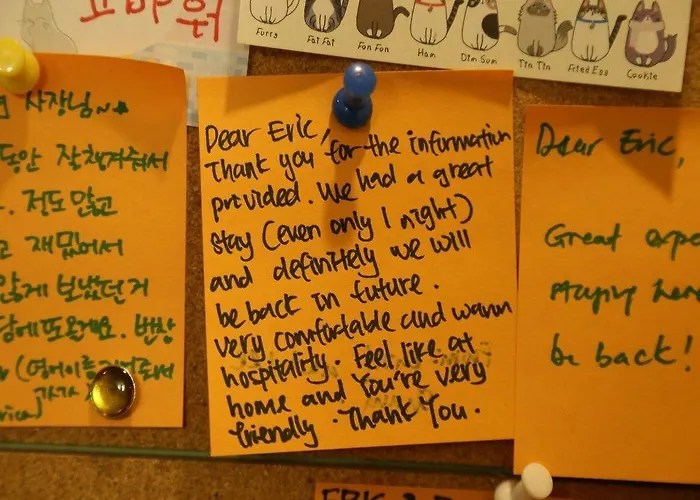 Furry
Fat Fat
Fon Fon
Ham
Dim Sum
Tin Tin
Fried Egg
Cookie
사장님~
동안 잘 챙겨줘서
. 정도 많고
고 재밌어서
않게 보냈던 거
Dear Eric,
Thank you for the information
provided. We had a great
stay (even only 1 night)
and definitely we will
be back in future.
very comfortable and warm
hospitality. Feel like at
home and You're very
friendly. Thank You.
Dear Eric,
Great expe
staying here
be back!